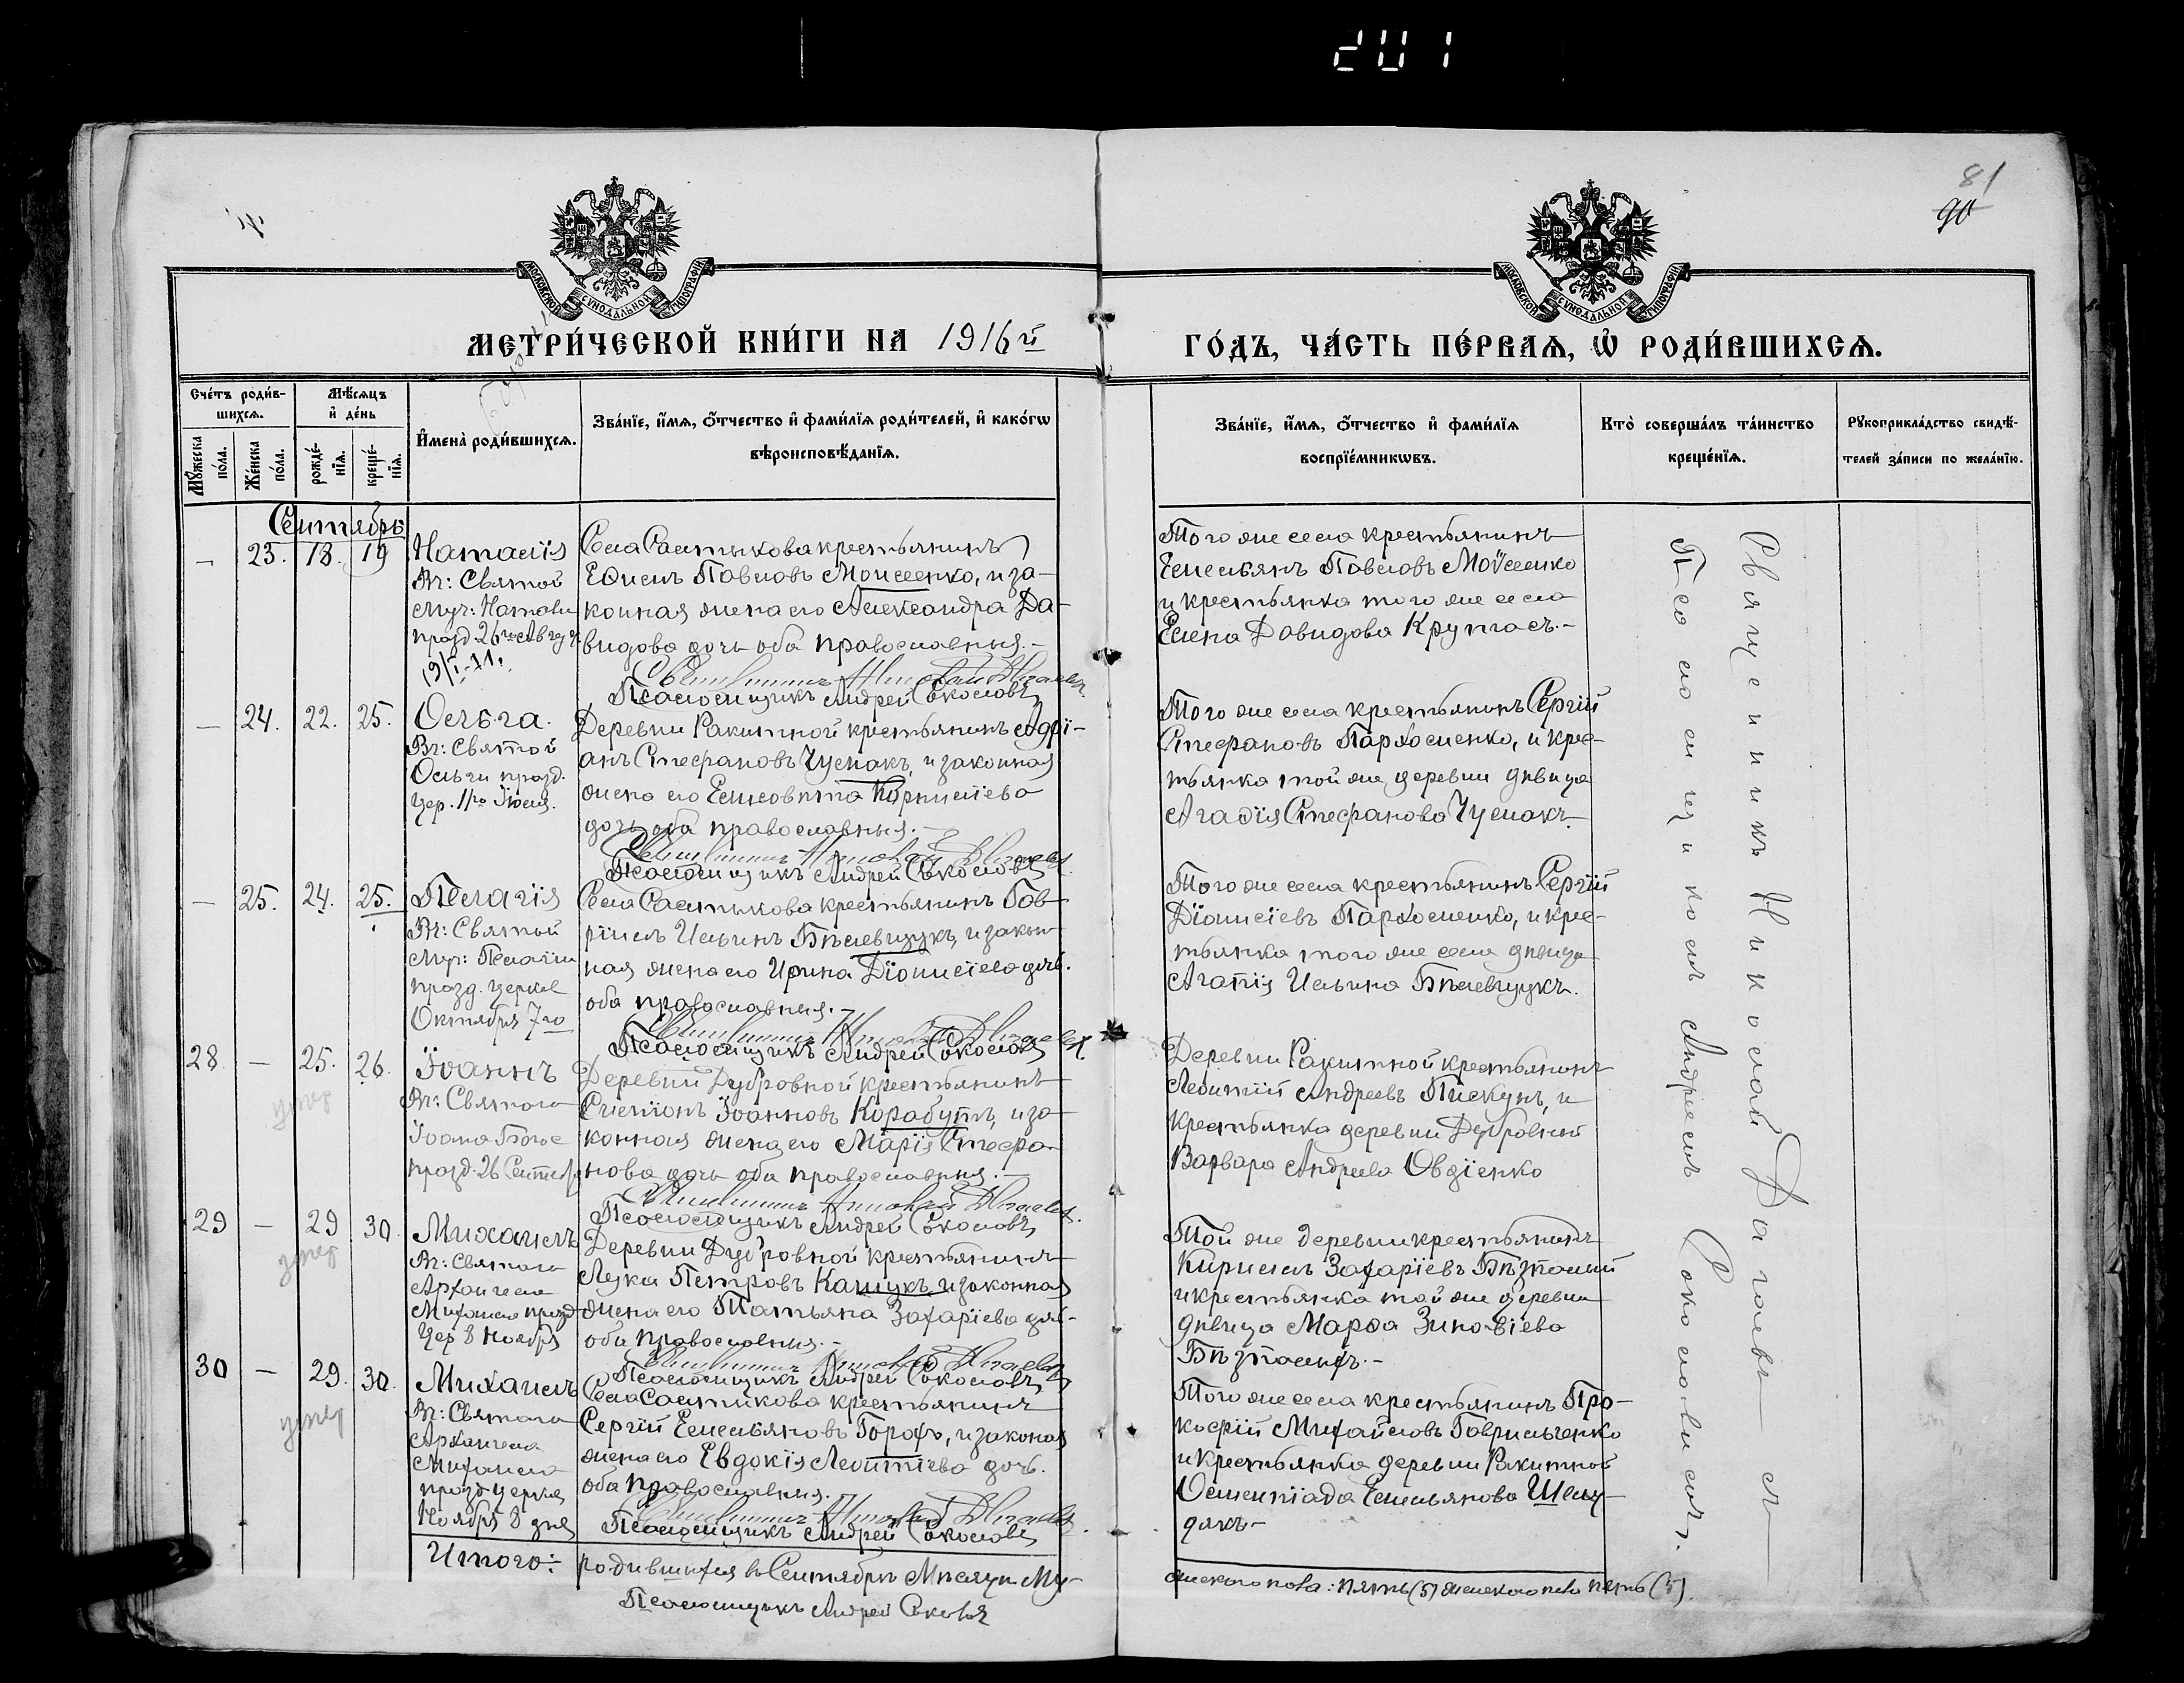 201
81
90
МОСКОВСКОЙ СѴНОДАЛЬНОЙ ТИПОГРАФІИ
МОСКОВСКОЙ СѴНОДАЛЬНОЙ ТИПОГРАФІИ
МЕТРИ́ЧЕСКОЙ КНИ́ГИ НА 1916 й
ГО́ДЪ, ЧА́СТЬ ПЕ́РВАѦ, Ѡ҆ РОДИ́ВШИХСѦ.
Сче́тъ роди́в-
шихсѧ.
Мꙋжеска по́ла.
Же́нска по́ла.
Мѣ́сѧцъ
и҆ де́нь
рожде́-
нїѧ.
креще́-
нїѧ.
И҆мена̀ роди́вшихсѧ.
Зва́нїе, и҆́мѧ, ѻ҆́тчество и҆ фами́лїѧ роди́телей, и҆ како́гѡ
вѣроисповѣ́данїѧ.
Зва́нїе, и҆́мѧ, ѻ҆́тчество и҆ фами́лїѧ
воспрїе́мникѡвъ.
Кто̀ соверша́лъ та́инство
креще́нїѧ.
Рꙋкоприкла́дство свидѣ́-
телей за́писи по жела́нїю.
Сентябрь
— 23. 18. 19
Наталія
Въ: Святой
Муч: Наталіи
празд 26го Август
Села Салтыкова крестьянинъ
Павловъ Моисеенко, и за-
конная жена его Александра Да-
видова дочь оба православныя.—
Псаломщикъ Андрей Соколовъ
Того же села крестьянинъ
Емельянъ Павловъ Моѵсеенко
и крестьянка того же села
Елена Давидова Крупгась.—
— 24. 22. 25.
Ольга.
Въ: Святой
Ольги празд.
цер. 11го Іюля.
Деревни Ракитной крестьянинъ Адрі-
анъ Стефановъ Чумакъ, и законная
жена его Елисовета Корниліева
дочь оба православныя.—
Псаломщикъ Андрей Соколовъ
Того же села крестьянинъ Сергій
Стефановъ Пархоменко, и крес-
тьянка той же деревни дѣвица
Агафія Стефанова Чумакъ.
— 25. 24. 25.
Пелагія
Въ: Святой
Муч: Пелагіи
празд. церков
Октября 7го
Села Салтыкова крестьянинъ Гав-
ріилъ Ильинъ Бѣлевцукъ, и закон-
ная жена его Ирина Діонисіева дочь.
оба православныя.—
Псаломщикъ Андрей Соколовъ
Того же села крестьянинъ Сергій
Діонисіевъ Пархоменко, и крес-
тьянка того же села дѣвица
Агапія Ильина Бѣлевцукъ.
28 — 25. 26.
умер
Іоаннъ
Въ: Святого
Іоана Богос
празд. 26 Сентяб
Деревни Дубровной крестьянинъ
Симеонъ Іоанновъ Корабутъ, и за-
конная жена его Марія Стефа-
нова дочь оба православныя.—
Псаломщикъ Андрей Соколовъ
Деревни Ракитной крестьянинъ
Леонтій Андреевъ Пискунъ, и
крестьянка деревни Дубровной
Варвара Андреева Овдіенко
29 — 29 30
умер
Михаилъ
Въ: Святого
Архангела
Михаила празд
цер 8 Ноября
Деревни Дубровной крестьянинъ
Лука Петровъ Кащукъ, и законная
жена его Татьяна Захаріева доч-
оба православныя.—
Псаломщикъ Андрей Соколовъ
Той же деревни крестьянинъ
Кирилъ Захаріевъ Бѣзпалый
и крестьянка той же деревни
дѣвица Марѳа Зиновіева
30 — 29. 30.
умер
Михаилъ
Въ: Святого
Архангела
Михаила
празд церков
Ноября 8 дня
Села Салтыкова крестьянинъ
Сергій Емельяновъ Горохъ, и законая
жена его Евдокія Леонтіева дочь.
оба православныя.
Псаломщикъ Андрей Соколовъ
Того же села крестьянинъ Про-
кофій Михайловъ Гаврильченко
и крестьянка деревни Ракитной
Олимпіада Емельянова Шелу-
дякъ—
Священникъ Николай
Псаломщикомъ Андреемъ Соколовымъ.
Итого: родившихся въ Сентябрѣ Мѣсяцѣ Му-
жеского пола: пять (5) женского пола пять (5).
Псаломщикъ Андрей Соколовъ